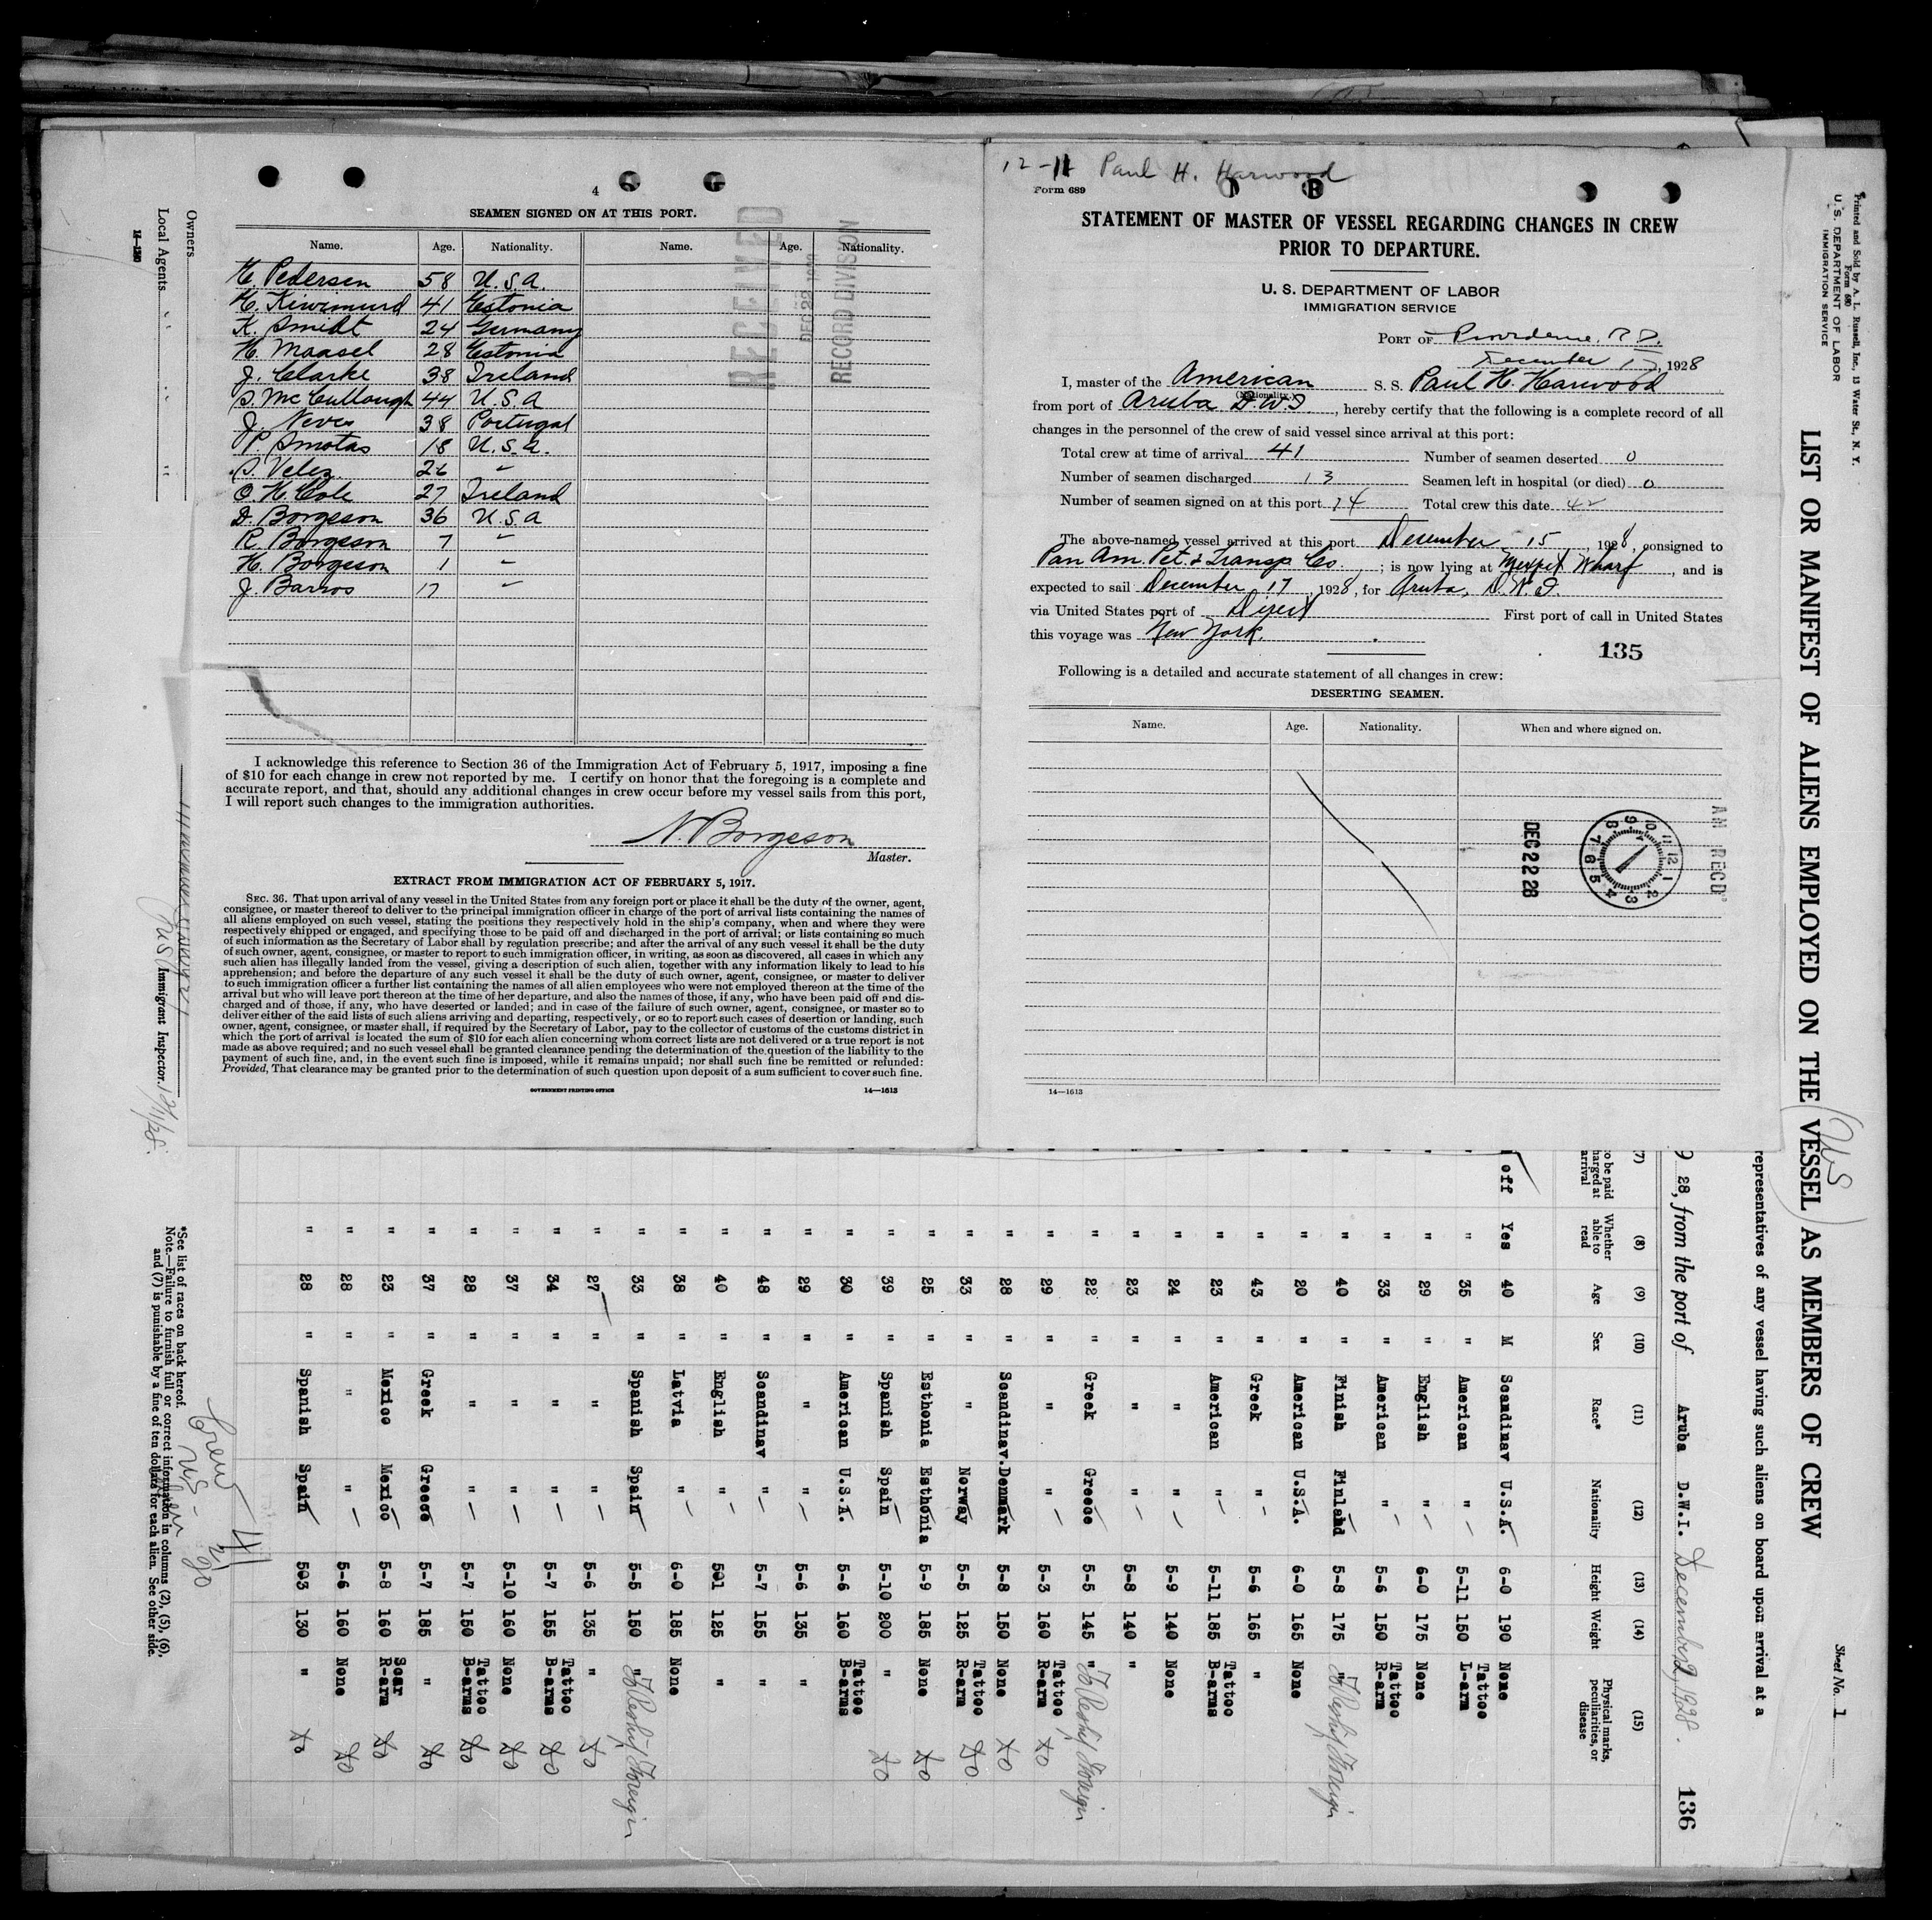 4
SEAMEN SIGNED ON AT THIS PORT.
Name. Age. Nationality. Name. Age. Nationality.
H. Pedersen 58 U.S.A.
41 Estonia
K. Smidt 24 Germany
H. Maasel 28 Estonia
J. Clarke 38 Ireland
S. McCullough 44 U.S.A
J. Neves 38 Portugal
P. Smotas 18 U.S.A.
S. Velez 26 "
O. H. Cole 27 Ireland
D. Borgeson 36 U.S.A
R. Borgeson 7 "
H. Borgeson 1 "
J. Barros 17 "
RECEIVED
DEC 22 1928
RECORD DIVISION
I acknowledge this reference to Section 36 of the Immigration Act of February 5, 1917, imposing a fine
of $10 for each change in crew not reported by me. I certify on honor that the foregoing is a complete and
accurate report, and that, should any additional changes in crew occur before my vessel sails from this port,
I will report such changes to the immigration authorities.
N. Borgeson
Master.
EXTRACT FROM IMMIGRATION ACT OF FEBRUARY 5, 1917.
SEC. 36. That upon arrival of any vessel in the United States from any foreign port or place it shall be the duty of the owner, agent,
consignee, or master thereof to deliver to the principal immigration officer in charge of the port of arrival lists containing the names of
all aliens employed on such vessel, stating the positions they respectively hold in the ship's company, when and where they were
respectively shipped or engaged, and specifying those to be paid off and discharged in the port of arrival; or lists containing so much
of such information as the Secretary of Labor shall by regulation prescribe; and after the arrival of any such vessel it shall be the duty
of such owner, agent, consignee, or master to report to such immigration officer, in writing, as soon as discovered, all cases in which any
such alien has illegally landed from the vessel, giving a description of such alien, together with any information likely to lead to his
apprehension; and before the departure of any such vessel it shall be the duty of such owner, agent, consignee, or master to deliver
to such immigration officer a further list containing the names of all alien employees who were not employed thereon at the time of the
arrival but who will leave port thereon at the time of her departure, and also the names of those, if any, who have been paid off and dis-
charged and of those, if any, who have deserted or landed; and in case of the failure of such owner, agent, consignee, or master so to
deliver either of the said lists of such aliens arriving and departing, respectively, or so to report such cases of desertion or landing, such
owner, agent, consignee, or master shall, if required by the Secretary of Labor, pay to the collector of customs of the customs district in
which the port of arrival is located the sum of $10 for each alien concerning whom correct lists are not delivered or a true report is not
made as above required; and no such vessel shall be granted clearance pending the determination of the question of the liability to the
payment of such fine, and, in the event such fine is imposed, while it remains unpaid; nor shall such fine be remitted or refunded:
Provided, That clearance may be granted prior to the determination of such question upon deposit of a sum sufficient to cover such fine.
GOVERNMENT PRINTING OFFICE 14—1613
12-11 Paul H. Harwood
Form 689
STATEMENT OF MASTER OF VESSEL REGARDING CHANGES IN CREW
PRIOR TO DEPARTURE.
U. S. DEPARTMENT OF LABOR
IMMIGRATION SERVICE
PORT OF Providence, R.I.
December 15, 1928
I, master of the American S. S. Paul H. Harwood
(Nationality.)
from port of Aruba D.W.I, hereby certify that the following is a complete record of all
changes in the personnel of the crew of said vessel since arrival at this port:
Total crew at time of arrival 41 Number of seamen deserted 0
Number of seamen discharged 13 Seamen left in hospital (or died) 0
Number of seamen signed on at this port 14 Total crew this date 42
The above-named vessel arrived at this port December 15, 1928, consigned to
Pan Am. Pet. & Transp Co.; is now lying at Mexpet Wharf, and is
expected to sail December 17, 1928, for Aruba, D.W.I.
via United States port of Direct First port of call in United States
this voyage was New York.
135
Following is a detailed and accurate statement of all changes in crew:
DESERTING SEAMEN.
Name. Age. Nationality. When and where signed on.
DEC 22 28
AM RECD
12 1 2 3 4 5 6 7 8 9 10 11
14—1613
Printed and Sold by A. L. Russell, Inc., 13 Water St., N. Y.
Form 680
U. S. DEPARTMENT OF LABOR
IMMIGRATION SERVICE
LIST OR MANIFEST OF ALIENS EMPLOYED ON THE VESSEL AS MEMBERS OF CREW
(US)
Sheet No. 1
representatives of any vessel having such aliens on board upon arrival at a
28, from the port of Aruba D.W.I. December 9, 1928. 136
(7) (8) (9) (10) (11) (12) (13) (14) (15)
to be paid Whether able to read Age Sex Race* Nationality Height Weight Physical marks, peculiarities, or disease
off Yes 40 M Scandinav U.S.A. 6-0 190 None
" " 35 " American " 5-11 150 Tattoo L-arm
" 29 " English " 6-0 175 None
" 33 " American " 5-6 150 Tattoo R-arm
" 40 " Finnish Finland 5-8 175 " To Reship Foreign
" 20 " American U.S.A. 6-0 165 None
" 43 " Greek " 5-6 165 "
" 23 " American " 5-11 185 Tattoo B-arms
" 24 " " " 5-9 140 None
" 23 " " " 5-8 140 "
" 22 " Greek Greece 5-5 145 " To Reship Foreign
" 29 " " " 5-3 160 Tattoo R-arm do
" 28 " Scandinav. Denmark 5-8 150 None do
" 33 " " Norway 5-5 125 Tattoo R-arm do
" 25 " Esthonia Esthonia 5-9 185 None do
" 39 " Spanish Spain 5-10 200 " do
" 30 " American U.S.A. 5-6 160 Tattoo B-arms
" 29 " " " 5-6 135 "
" 48 " Scandinav " 5-7 155 "
" 40 " English " 501 125 "
" 38 " Latvia " 6-0 185 None
" 33 " Spanish Spain 5-5 150 " To Reship Foreign
" 27 " " " 5-6 135 " do
" 34 " " " 5-7 155 Tattoo B-arms do
" 37 " " " 5-10 160 None do
" 28 " " " 5-7 150 Tattoo B-arms do
" 37 " Greek Greece 5-7 185 " do
" 23 " Mexico Mexico 5-8 160 Scar R-arm do
" 28 " " " 5-6 160 None do
" 28 " Spanish Spain 503 130 " do
Crew 41
US - 21
20
*See list of races on back hereof.
Note.—Failure to furnish full or correct information in columns (2), (5), (6),
and (7) is punishable by a fine of ten dollars for each alien. See other side.
Owners
Local Agents
Immigrant Inspector.
12/11/28.